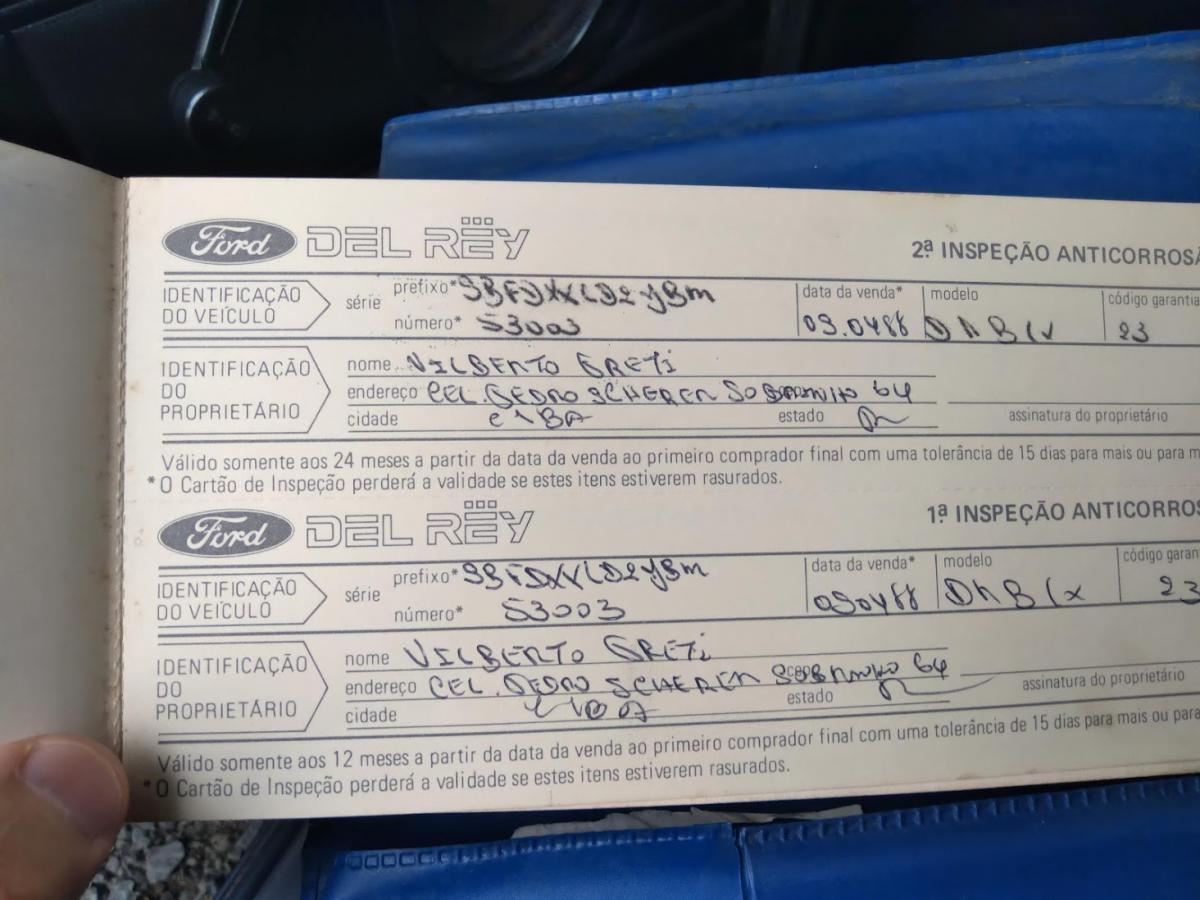 Ford DEL REY 2ª INSPEÇÃO ANTICORROSÃ
IDENTIFICAÇÃO DO VEÍCULO
série prefixo* 9BFDXXLD2JBM data da venda* modelo código garantia
número* 53003 09.0488 23
IDENTIFICAÇÃO DO PROPRIETÁRIO
nome VILBERTO GRETI
endereço CEL. PEDRO SCHERER SOBRINHO 64
cidade estado assinatura do proprietário
Válido somente aos 24 meses a partir da data da venda ao primeiro comprador final com uma tolerância de 15 dias para mais ou para m
*O Cartão de Inspeção perderá a validade se estes itens estiverem rasurados.
Ford DEL REY 1ª INSPEÇÃO ANTICORROS
IDENTIFICAÇÃO DO VEÍCULO
série prefixo* 9BFDXXLD2JBM data da venda* modelo código garan
número* 53003 090488 23
IDENTIFICAÇÃO DO PROPRIETÁRIO
nome VILBERTO GRETI
endereço CEL. PEDRO SCHERER SOBRINHO 64
cidade estado assinatura do proprietário
Válido somente aos 12 meses a partir da data da venda ao primeiro comprador final com uma tolerância de 15 dias para mais ou para
*O Cartão de Inspeção perderá a validade se estes itens estiverem rasurados.